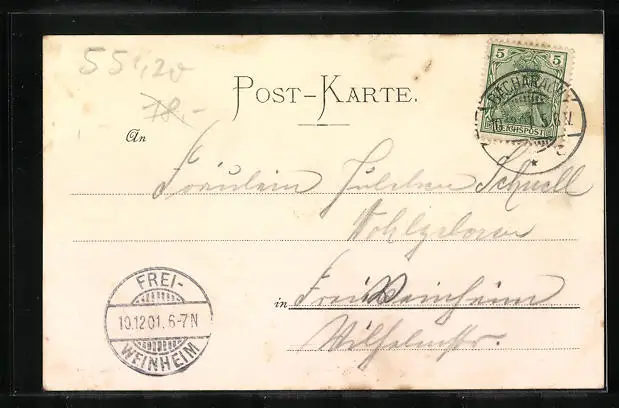 55,20
18.-
POST-KARTE.
5 5
REICHSPOST
BACHARACH
An
Fräulein Julchen Schnell
Wohlgeboren
in Frei Weinheim
Wilhelmstr.
FREI-
10.12.01. 6-7N
WEINHEIM